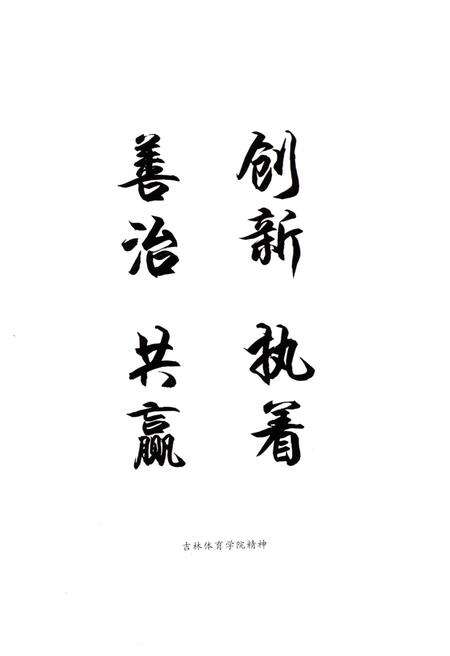 创新 执着
善治 共赢
吉林体育学院精神